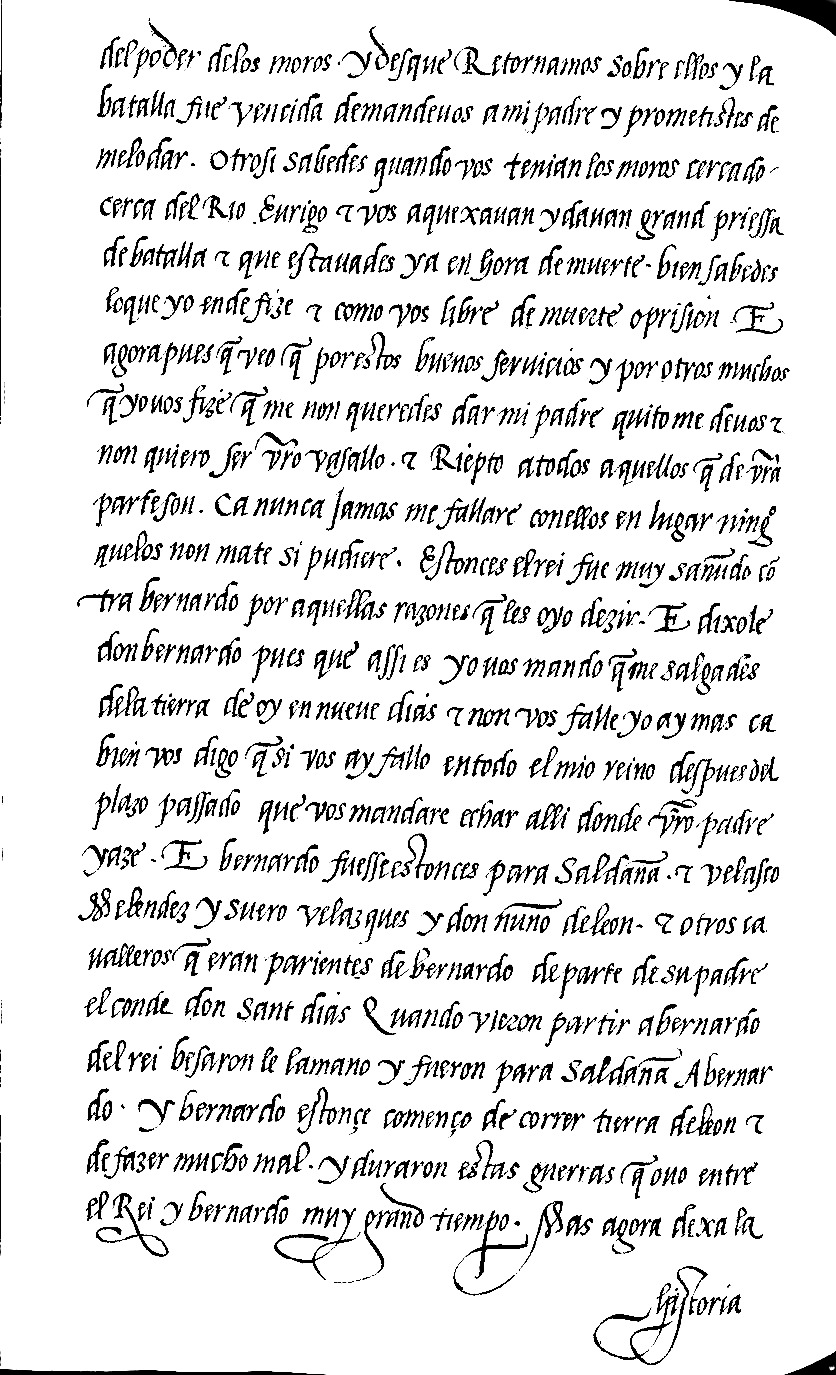 del poder delos moros. y desque Retornamos sobre ellos y la
batalla fue vencida demandeuos a mi padre y prometistes de
melo dar. Otrosi sabedes quando vos tenian los moros cercado
cerca del Rio Eurigo ⁊ vos aquexauan y dauan grand priessa
de batalla ⁊ que estauades ya en hora de muerte. bien sabedes
loque yo ende fize ⁊ como vos libre de muerte o prision. E
agora pues q̃ veo q̃ por estos buenos seruicios y por otros muchos
q̃ yo uos fize q̃ me non queredes dar mi padre quito me de uos ⁊
non quiero ser vr̃o vasallo. ⁊ Riepto a todos aquellos q̃ de vr̃a
parte son. Ca nunca Jamas me fallare con ellos en lugar ningº
quelos non mate si pudiere. Estonces el rei fue muy sañudo cõ
tra bernardo por aquellas razones q̃ les oyo dezir. E dixole
don bernardo pues que assi es yo uos mando q̃ me salgades
dela tierra de oy en nueue dias ⁊ non vos falle yo ay mas ca
bien vos digo q̃ si vos ay fallo en todo el mio reino despues del
plazo passado que vos mandare echar alli donde vr̃o padre
yaze. E bernardo fuesse estonces para Saldaña. ⁊ velasco
Melendez y suero velazques y don nuño de leon. ⁊ otros ca
ualleros q̃ eran parientes de bernardo de parte de su padre
el conde don Sant dias Quando vieron partir a bernardo
del rei besaron le la mano y fueron para Saldaña A bernar
do. y bernardo estonçe començo de correr tierra de leon ⁊
de fazer mucho mal. y duraron estas guerras q̃ ouo entre
el Rei y bernardo muy grand tiempo. Mas agora dexa la
historia